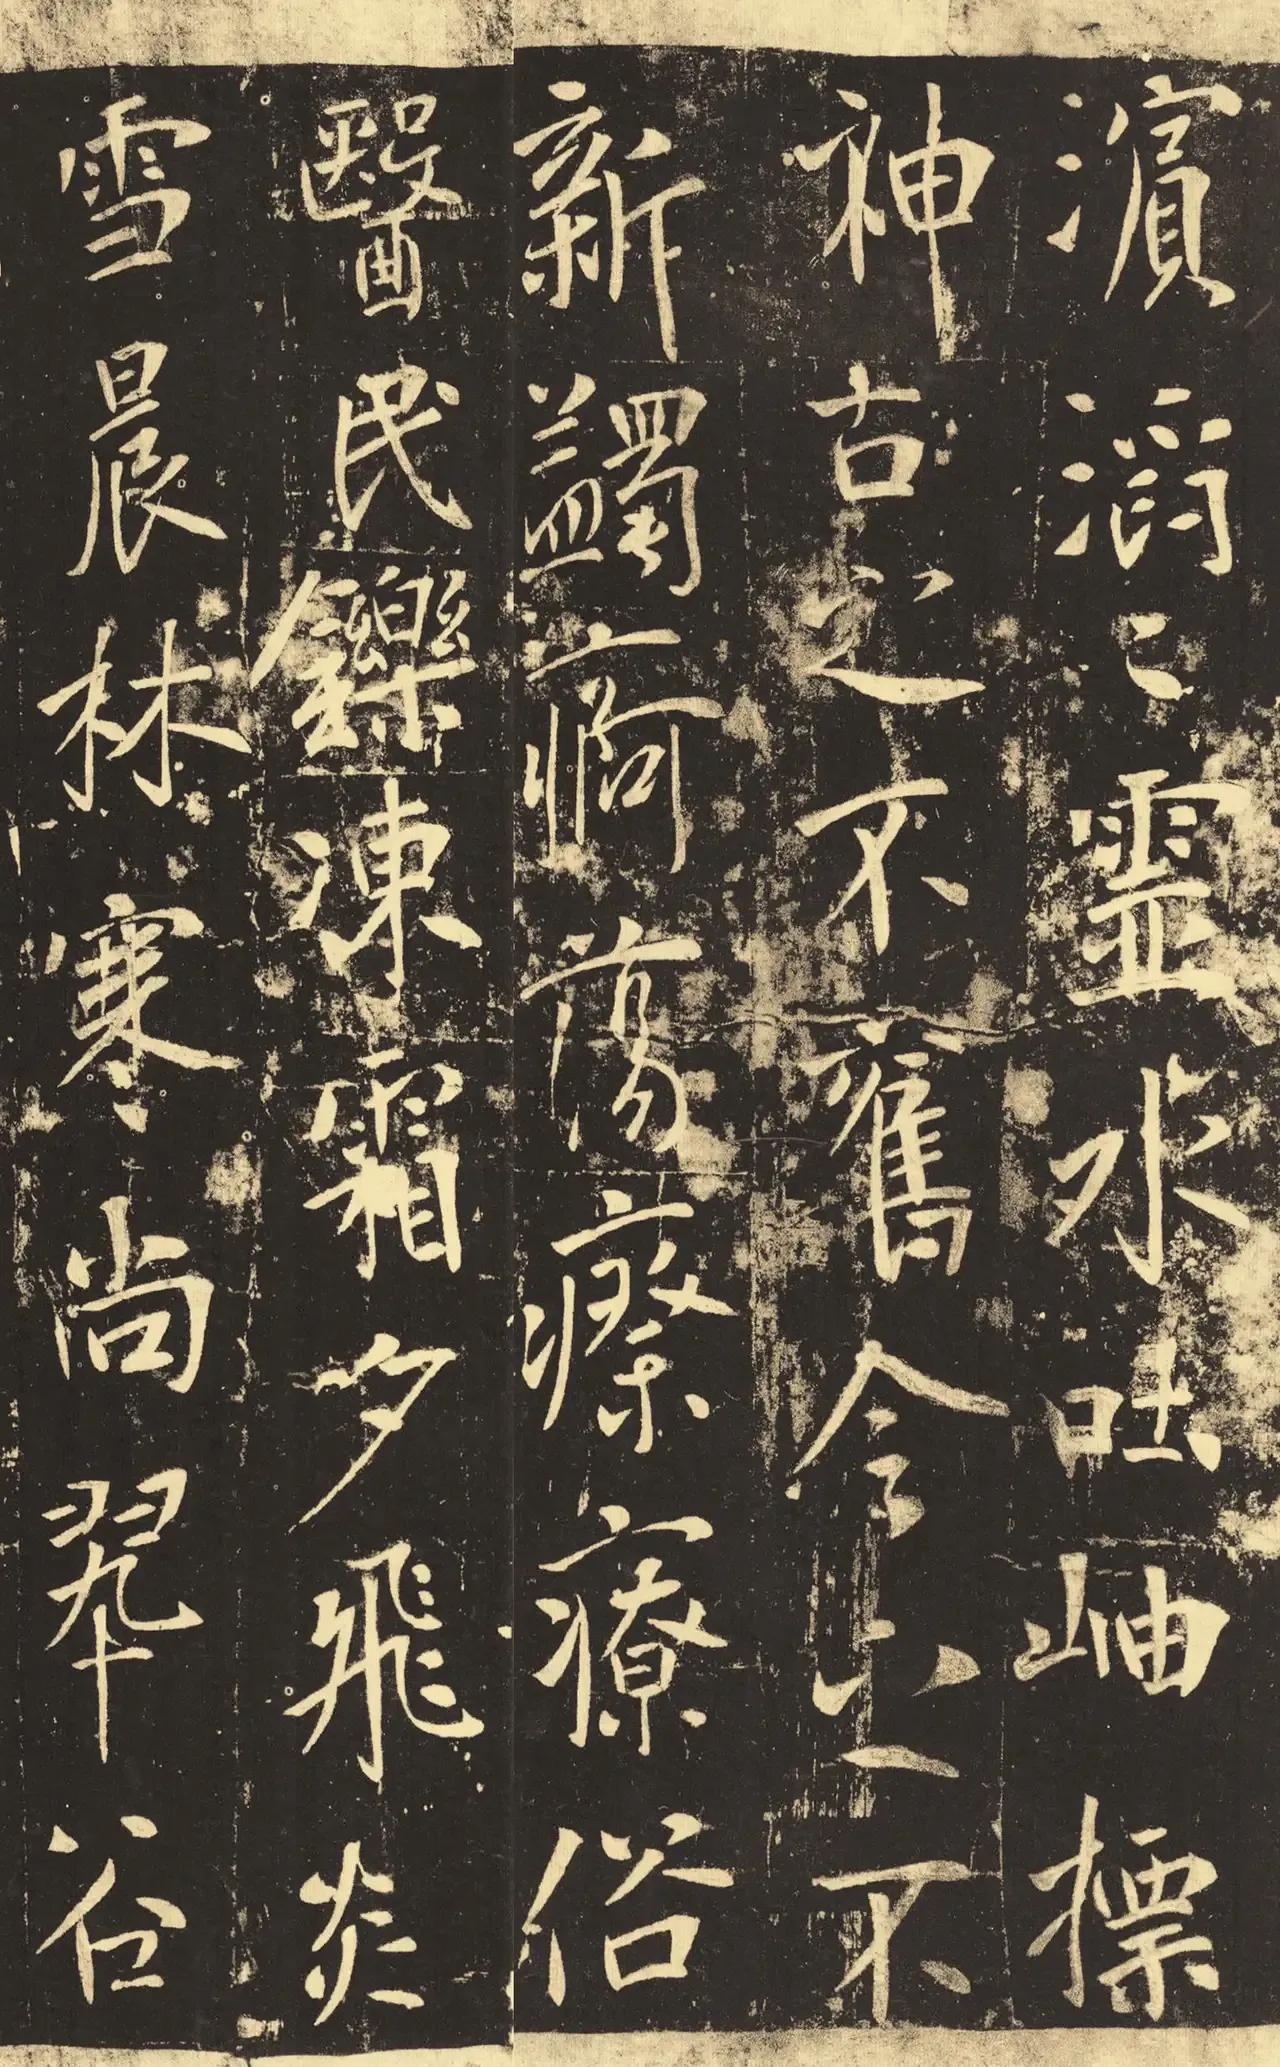 濱滔〻靈水吐岫標
神古之不舊今之不
新蠲痾蕩瘵療俗
醫民鑠凍霜夕飛炎
雪晨林寒尚翠谷